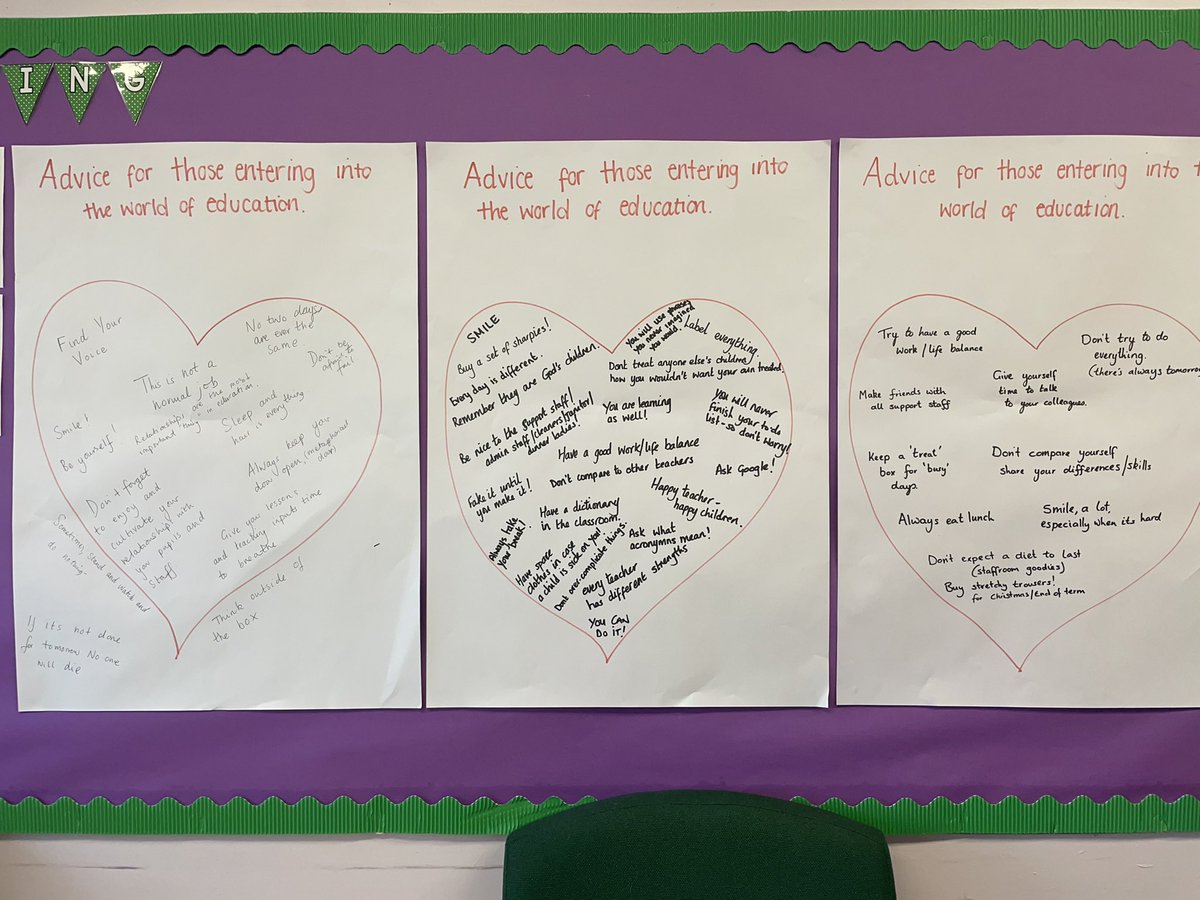 I N G
Advice for those entering into
the world of education.
Find Your
Voice
No two days
are ever the
same
Don't be
afraid to
fail
This is not a
normal job
Relationships are the most
important thing in education.
Smile!
Be yourself!
Sleep and
hair is everything
Always keep your
door open (metaphorical
door)
Don't forget
to enjoy and
cultivate your
relationship with
you pupils and
staff
Give your lessons
and tracking inputs time
to breathe
Sometimes, stand and watch and
do nothing.
Think outside of
the box
If its not done
for tomorrow No one
will die
Advice for those entering into
the world of education.
SMILE
Buy a set of sharpies!
Every day is different.
Remember they are God's children.
You will use phrases
you never imagined
you would.
Label everything.
Dont treat anyone else's children
how you wouldn't want your own treated.
Be nice to the support staff!
admin staff/cleaners/janitor/
dinner ladies!
You are learning
as well!
You will never
finish your to-do
list - so don't worry!
Have a good work/life balance
Don't compare to other teachers
Ask Google!
Fake it until
you make it!
Have a dictionary
in the classroom.
Happy teacher -
happy children.
Always take
your break!
Have spare
clothes in case
a child is sick on you!
Dont over complicate things.
Ask what
acronymns mean!
every teacher
has different strengths
You CAN
Do it!
Advice for those entering into
world of education.
Try to have a good
work/life balance
Don't try to do
everything.
(there's always tomorrow
Make friends with
all support staff
Give yourself
time to talk
to your colleagues.
Keep a 'treat'
box for 'busy'
days.
Don't compare yourself
share your differences/skills
Always eat lunch
Smile, a lot,
especially when its hard
Don't expect a diet to last
(staffroom goodies)
Buy stretchy trousers!
for Christmas/End of term